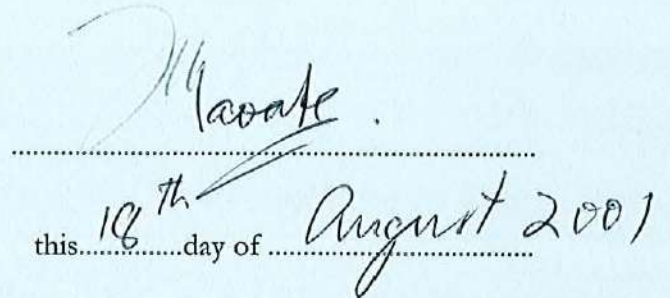 Maoate.
this 18th day of August 2001